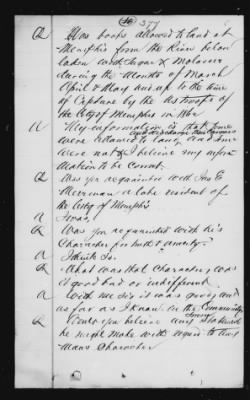 (40) 377
Q Was boats allowed to land at
Memphis from the River below
laden with Sugar & Molasses
during the Months of March
April & May and up to the time
of Capture by the US troops of
the City of Memphis in 1862
A My information is that some
were allowed to land and discharge their Cargoes and some
were not & I believe my infor
mation to be Correct.
Q Was you acquainted with Jno G
Merriman a late resident of
the City of Memphis
A I was,
Q Was you acquainted with his
Character for truth & veracity?
A I think so.
Q What was that Character, was
it good bad or indifferent
A With me Sir it was good, and
as far as I know in the Community
Q Would you believe any Statement
he might make with regard to any
Mans Character